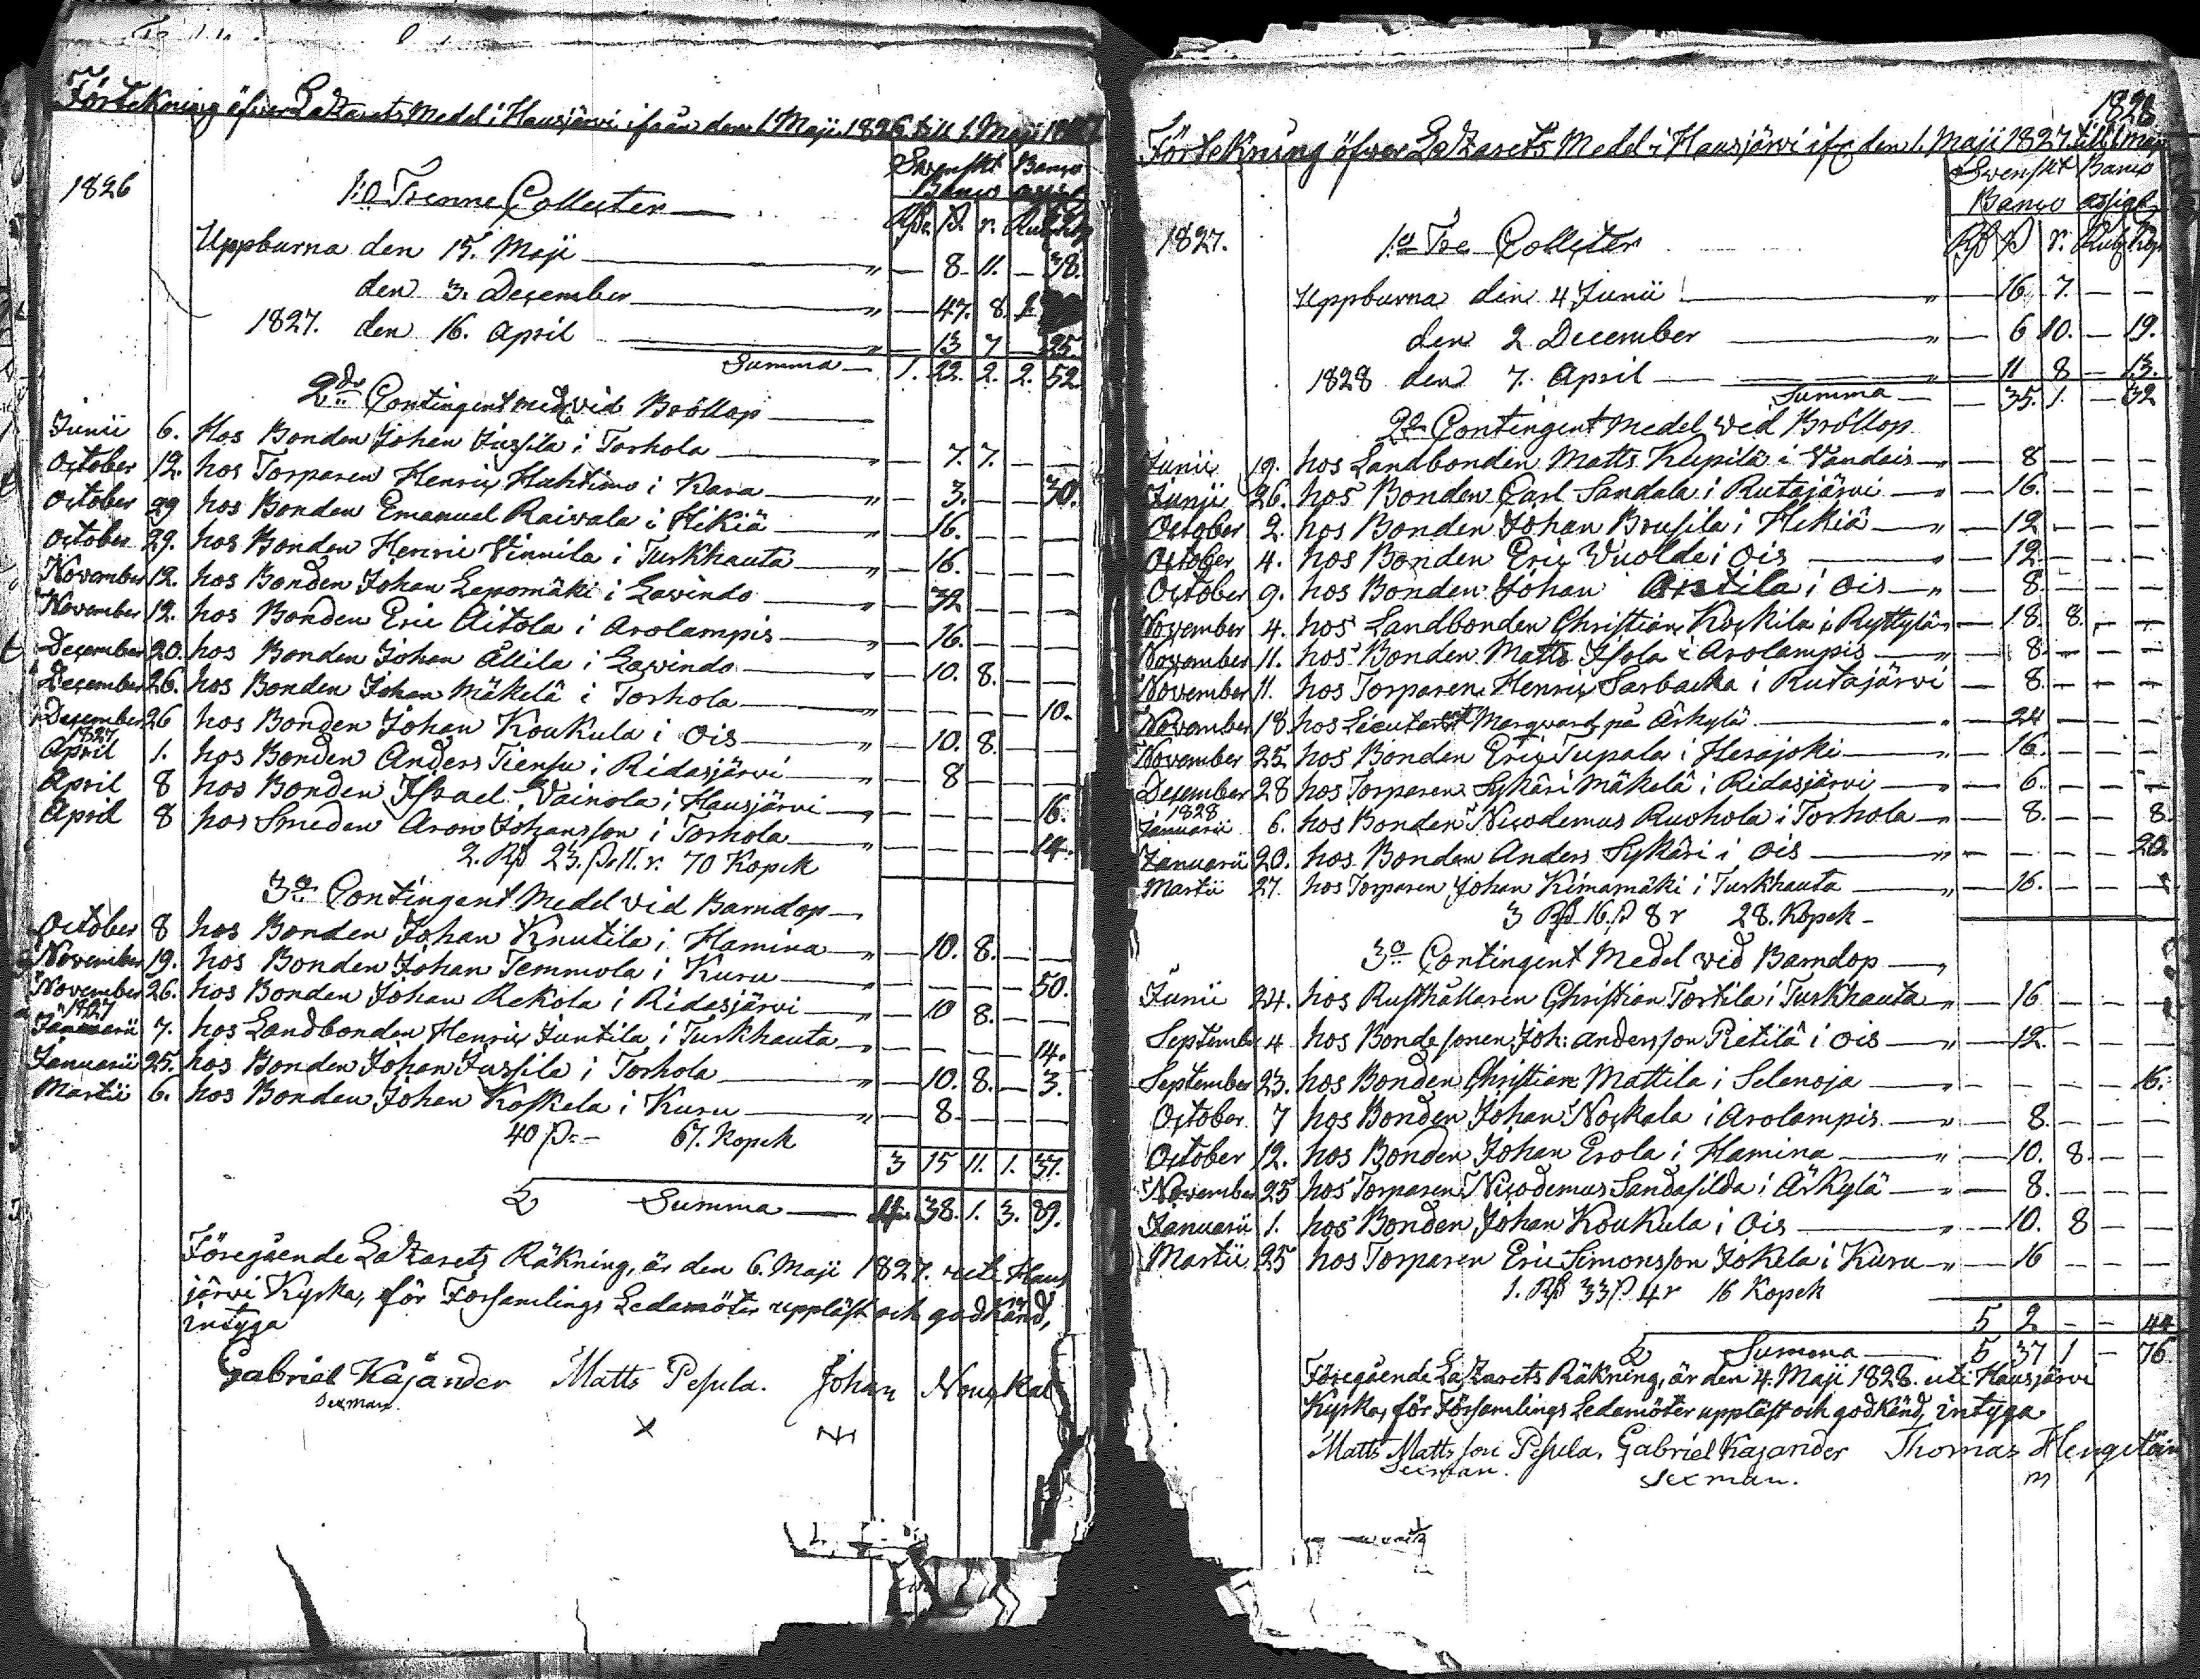 Förtekning öfver Lazarets Medel i Hausjärvi ifrån den 1 Maji 1826 till 1 Maji
Svenskt Banco
Banco assign
1826 1:o Trenne Collecter
Rdr ß. r. Rub. Kop
Uppburna den 15. Maji — 8. 11. — 38.
den 3. December — 47. 8. 1.
1827. den 16. April — 13 7 — 25.
Summa — 1. 22. 2. 2. 52.
2do Contingent med. vid Bröllop
Junii 6. Hos Bonden Johan Jussila i Torhola — 7. 7. — —
October 12. hos Torparen Henric Huhtimo i Kara — 3. — — 30.
October 29 hos Bonden Emanuel Raivala i Hikiä — 16. — — —
October 29. hos Bonden Henric Vinnila i Turkhauta — 16. — — —
November 12. hos Bonden Johan Lepomäki i Lavindo — 32 — — —
November 12. hos Bonden Eric Aitola i Arolampis — 16. — — —
December 20. hos Bonden Johan Ållila i Lavindo — 10. 8. — —
December 26. hos Bonden Johan Mäkelä i Torhola — — — — 10.
December 26 hos Bonden Johan Koukula i Ois — 10. 8. — —
1827
April 1. hos Bonden Anders Tiensu i Ridasjärvi — 8 — — —
April 8 hos Bonden Israel Vainola i Hausjärvi — — — — 16.
April 8 hos Smeden Aron Johansson i Torhola — — — — 14.
2. Rß 23. ß. 11. r. 70 Kopek
3o Contingent Medel vid Barndop
October 8 hos Bonden Johan Knutila i Hamina — 10. 8. — —
November 19. hos Bonden Johan Temmola i Kuru — — — — 50.
November 26. hos Bonden Johan Rekola i Ridasjärvi — 10 8. — —
1827
Januarii 7. hos Landbonden Henric Juntila i Turkhauta — — — — 14.
Januarii 25. hos Bonden Johan Jussila i Torhola — 10. 8. — 3.
Martii 6. hos Bonden Johan Koskela i Kuru — 8. — — —
40 ß. — 67. Kopek
3 15 11. 1. 37.
Summa — 38. 1. 3. 89.
Föregående Lazarets Räkning, är den 6. Maji 1827. uti Haus
järvi Kyrka, för Forsamlings Ledamöter uppläst och godkänd,
intyga
Gabriel Kajander Matts Pesula. Johan
Sexman.
1828
Förtekning öfver Lazarets Medel i Hausjärvi ifr. den 1. Maji 1827. till 1 maji
Svenskt Banco
Banco assign
1827. 1:o Tre Collecter
Rß ß r. Rub. Kop.
Uppburna den 4 Junii — 16. 7. — —
den 2 December — 6 10. — 19.
1828 den 7. April — 11 8 — 13.
Summa — 35. 1. — 32
2do Contingent Medel ved Bröllop
Junii 19. hos Landbonden Matts Kupila i Vandais — 8 — — —
Junii 26. hos Bonden Carl Sandala i Rutajärvi — 16. — — —
October 2. hos Bonden Johan Brusila i Hikiä — 12 — — —
October 4. hos Bonden Eric Vuolde i Ois — 12. — — —
October 9. hos Bonden Johan Antila i Ois — 8. — — —
November 4. hos Landbonden Christian Koskila i Ryttylä — 18. 8. — —
November 11. hos Bonden Matts Isola i Arolampis — 8. — — —
November 11. hos Torparen Henric Sarbacka i Rutajärvi — 8. — — —
November 18. hos Lieutenant Marqvard på Ärkylä — 24 — — —
November 25. hos Bonden Eric Tupala i Herajoki — 16. — — —
December 28 hos Torparen Sykäri Mäkelä i Ridasjärvi — 6. — — —
1828
Januarii 6. hos Bonden Nicodemus Ruohola i Torhola — 8. — — 8.
Januarii 20. hos Bonden Anders Sykäri i Ois — — — — 20.
Martii 27. hos Torparen Johan Kimamäki i Turkhauta — 16. — —
3 Rß 16. ß 8 r 28. Kopek —
3o Contingent Medel wid Barndop
Junii 24. hos Rusthållaren Christian Tortila i Turkhauta — 16 — — —
Septemb. 4 hos Bondesonen Joh: andersson Pietilä i Ois — 12. — — —
September 23. hos Bonden Christian Mattila i Selenoja — — — — 16.
October 7 hos Bonden Johan Nockala i Arolampis — 8. — — —
October 12. hos Bonden Johan Erola i Hamina — 10. 8. — —
November 25 hos Torparen Nicodemus Sandasilda i Ärkylä — 8. — — —
Januarii 1. hos Bonden Johan Koukula i Ois — 10. 8 — —
Martii 25 hos Torparen Eric Simonsson Jokela i Kuru — 16 — — —
1. Rß 33 ß 4 r 16 Kopek
5 2 — — 44
Summa — 5 37 1 — 76
Föregående Lazarets Räkning, är den 4. Maji 1828. uti Hausjärvi
Kyrka, för Församlings Ledamöter uppläst och godkänd, intyga
Matts Mattsson Pesula. Gabriel Kajander Thomas
Sexman. Sexman.